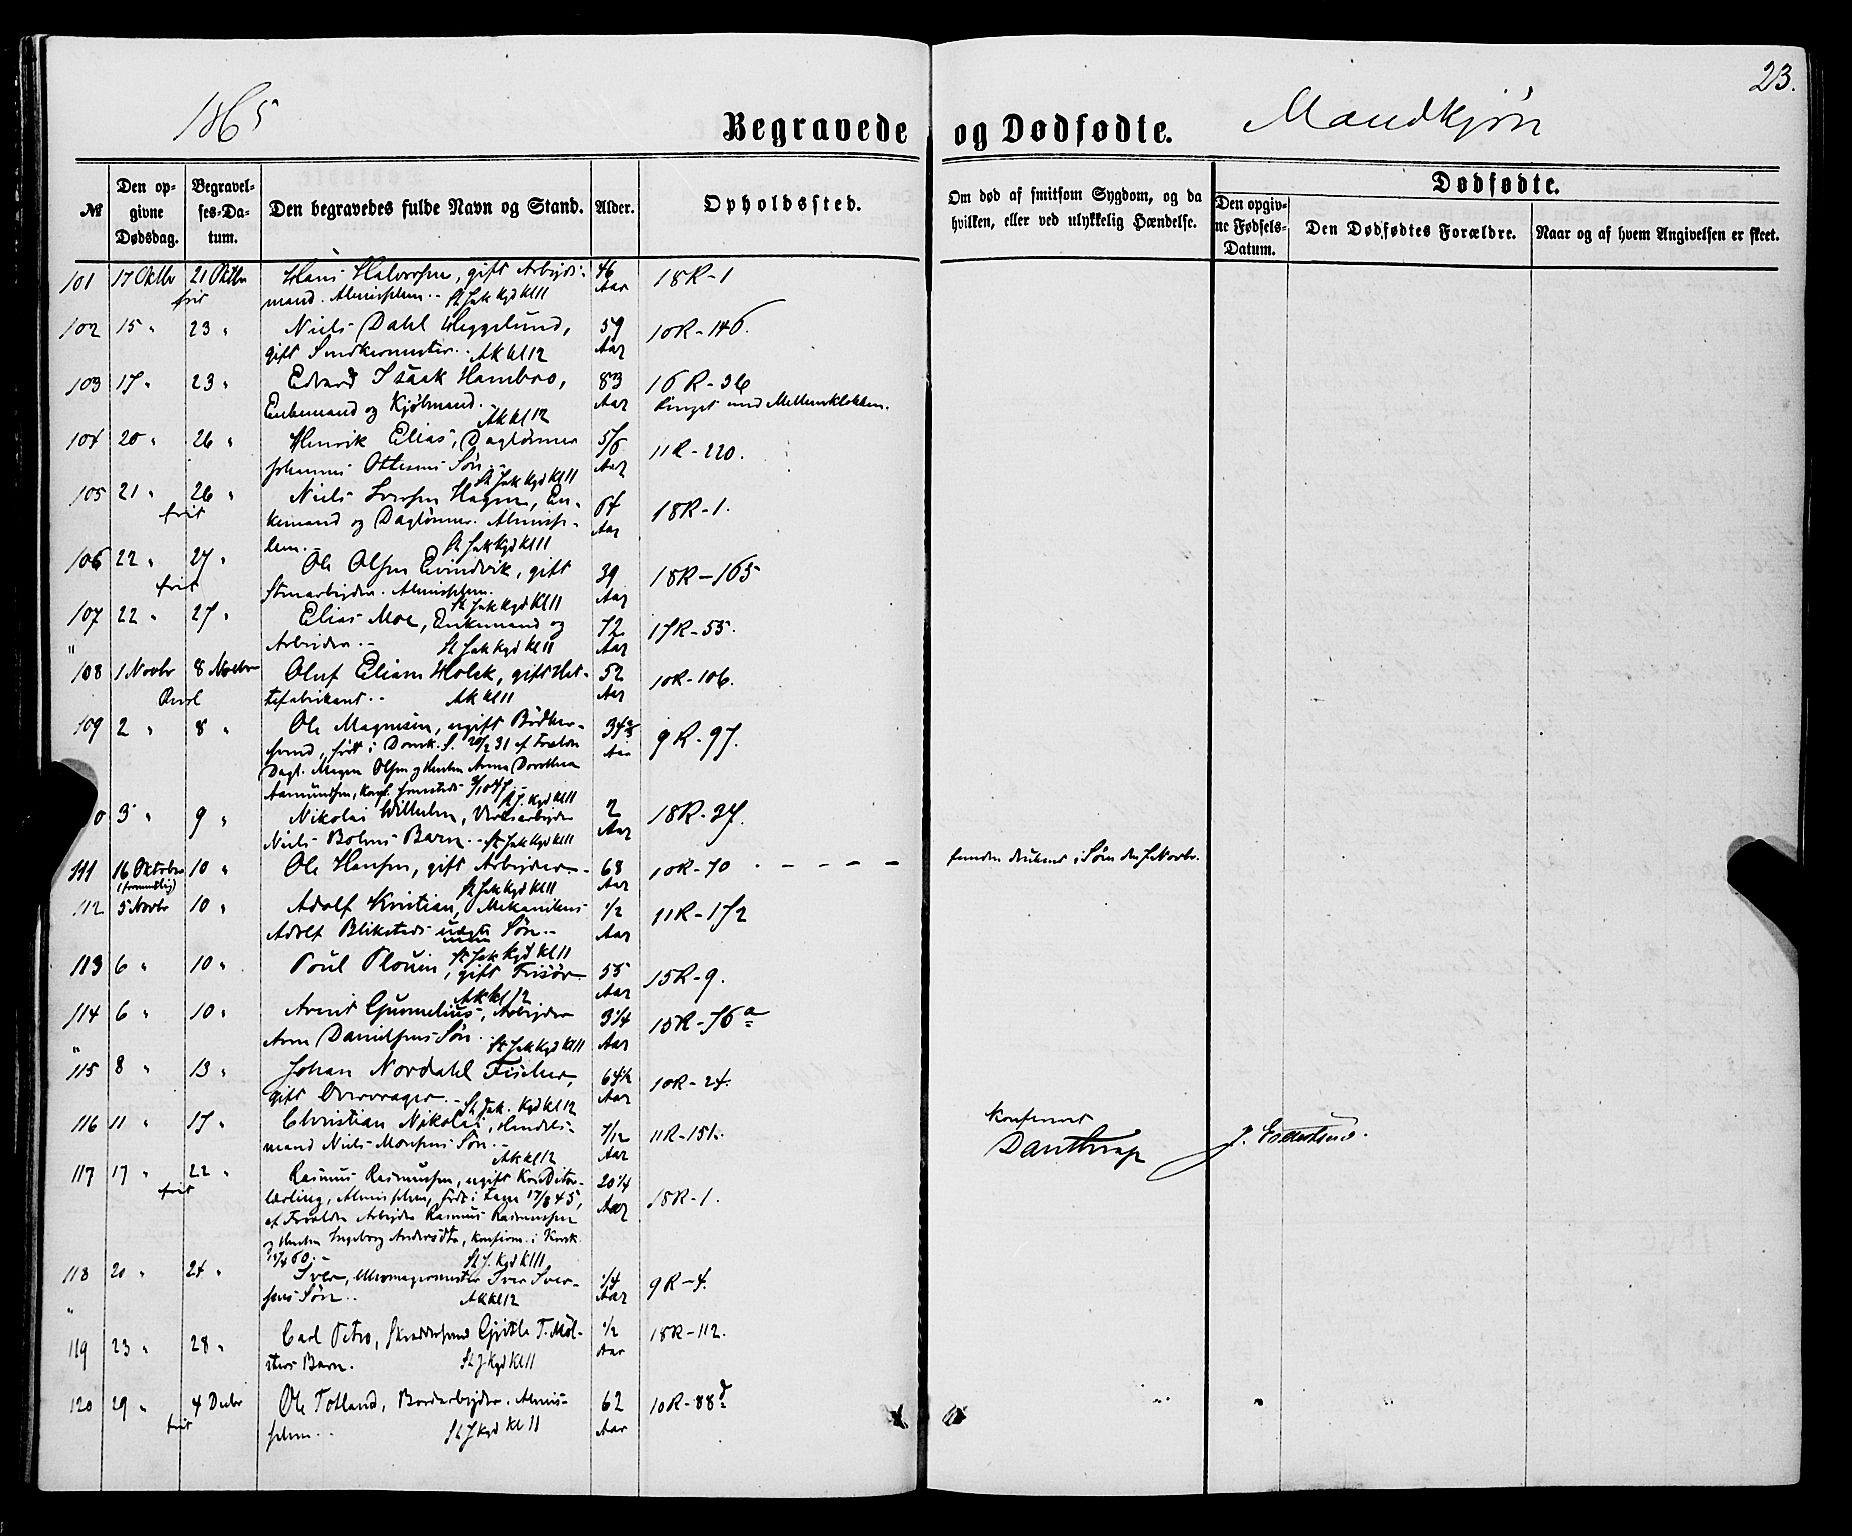 23.
1865
Begravede og Dødfødte.
Mandkjøn
№
Den op-
givne
Dødsdag.
Begravel-
ses-Da-
tum.
Den begravedes fulde Navn og Stand.
Alder.
Opholdssted.
Om død af smitsom Sygdom, og da
hvilken, eller ved ulykkelig Hændelse.
Dødfødte.
Den opgiv-
ne Fødsels-
Datum.
Den Dødfødtes Forældre.
Naar og af hvem Angivelsen er skeet.
101 17 Oktbr 21 Oktbr Hans Halvorsen, gift Arbejds- 46 Aar 18R-1
frit mand. Almisselem.- St Jak Kgd Kl 11
102 15 " 23 " Niels Dahl Heggelund, 59 Aar 10R-146.
gift Snedkermester.- AK kl 12
103 17 " 23 " Edvard Isaak Hambro, 83 Aar 16R-36
Enkemand og Kjøbmand.- AK kl 12 Ringet med Mellemklokken.
104 20 " 26 " Henrik Elias, Daglønner 5/6 Aar 11R-220.
Johannes Ottesens Søn.- St Jak Kgd Kl 11
105 21 " 26 " Niels Iversen Hagen, En- 64 Aar 18R-1.
frit kemand og Daglønner. Almisse-
lem.- St Jak Kgd Kl 11
106 22 " 27 " Ole Olsen Evindvik, gift 39 Aar 18R-165
frit Stenarbejder. Almisselem. St Jak Kgd Kl 11
107 22 " 27 " Elias Moe, Enkemand og 72 Aar 17R-55.
" Arbejder.- St Jak Kgd Kl 11
108 1 Novbr 8 Novbr Oluf Eliam Holck, gift Hat- 52 Aar 10R-106.
tefabrikant.- AK kl 11
109 2 " 8 " Ole Magnesen, ugift Bødker- 34 Aar 9R-97.
svend, født i Domk. S. 20/2 31 af Forældre
Dagl. Mogen Olsen og Hustru Anna Dorothea
Aamundsen, konf. sammesteds St J. Kgd Kl 11
0 3 " 9 " Nikolai Wilhelm, Værksarbejder 2 Aar 18R-37.
Niels Bohns Barn.- St Jak Kgd Kl 11
111 16 Oktober 10 " Ole Hansen, gift Arbejder- 68 Aar 10R-70 - - - - funden druknet i Søen den 7 Novbr.
(formentlig) St Jak Kgd Kl 11
112 5 Novbr 10 " Adolf Kristian, Mekanikus 1/2 Aar 11R-172
Adolf Bliksteds uægte Søn.-
St Jak Kgd Kl 11
113 6 " 10 " Poul Plouin, gift Frisør 55 Aar 15R-9.
AK kl 12
114 6 " 10 " Arent Gunnelius, Arbejder 3 1/4 Aar 15R-76 a
" Arne Danielsens Søn. St Jak Kgd Kl 11
115 8 " 13 " Johan Nordahl Fischer, 64 1/2 Aar 10R-24.
gift Overvrager.- St Jak. Kgd Kl 12
116 11 " 17 " Christian Nikolai, Handels- 7/12 Aar 11R-151.
mand Niels Monsens Søn.- AK kl 12
Konfereret
Danthrap
117 17 " 22 " Rasmus Rasmussen, ugift Konditor- 20 1/4 Aar 18R-1.
frit lærling, Almisselem, født i 17/8 45,
af Forældre Arbejder Rasmus Rasmussen
og Hustru Ingeborg Andersdtr, konfirm. i Kork.
60.- St J. Kgd Kl 11
118 20 " 24 " Iver, Murmagermester Iver Iver- 1/4 Aar 9R-4.
" sens Søn.- AK kl 12
119 23 " 28 " Carl Petro, Skræddersvend Gjitle T. Møl- 1/2 Aar 18R-112.
sters Barn. St J Kgd Kl 11
120 29 " 4 Decbr Ole Totland, Bordarbejder. Almis- 62 Aar 10R-88 d
frit selem.- St J Kgd Kl 11